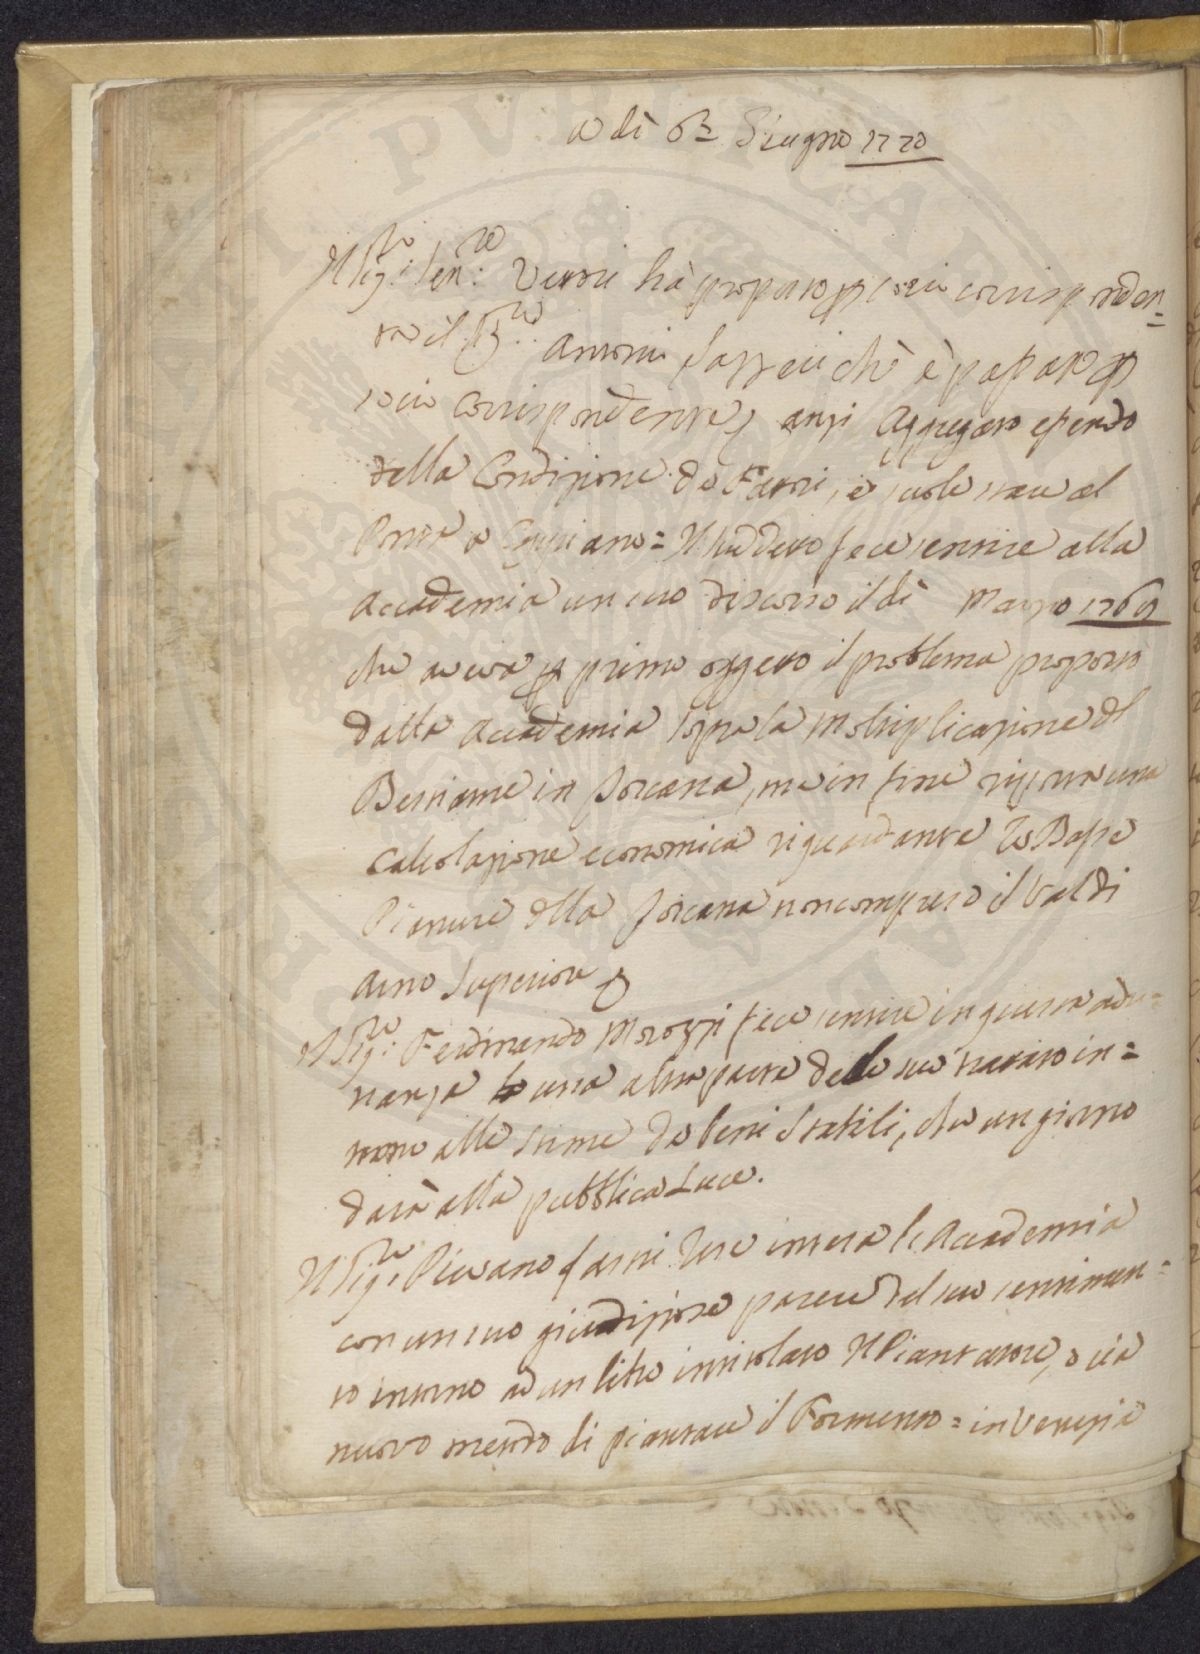 a dì 6 Giugno 1770
Il Sig:re Sen:re Vettori hà proposto per socio corrisponden=
te il
Antonio che è passato per
socio corrispondente, anzi Aggregato essendo
della Condizione de Fattori, e suole stare al
Ponte a = Il suddetto fece sentire alla
Accademia un suo discorso il dì Marzo 1769
che aveva per primo oggetto il problema proposto
dalla Accademia sopra la Moltiplicazione del
Bestiame in Toscana, ma in fine riporta una
Calcolazione economica riguardante le Basse
Pianure della Toscana non compreso il Val di
Arno Superiore
Il Sig:re Ferdinando Morozzi fece sentire in questa adu=
nanza una altra parte del suo trattato in=
torno alle stime de beni Stabili, che un giorno
darà alla pubblica Luce.
Il Sig:re Piovano Rese intesa l'Accademia
con un suo giudizioso parere del suo sentimen=
to intorno ad un libro intitolato Il Piantatore, o sia
nuovo metodo di piantare il Formento = in Venezia